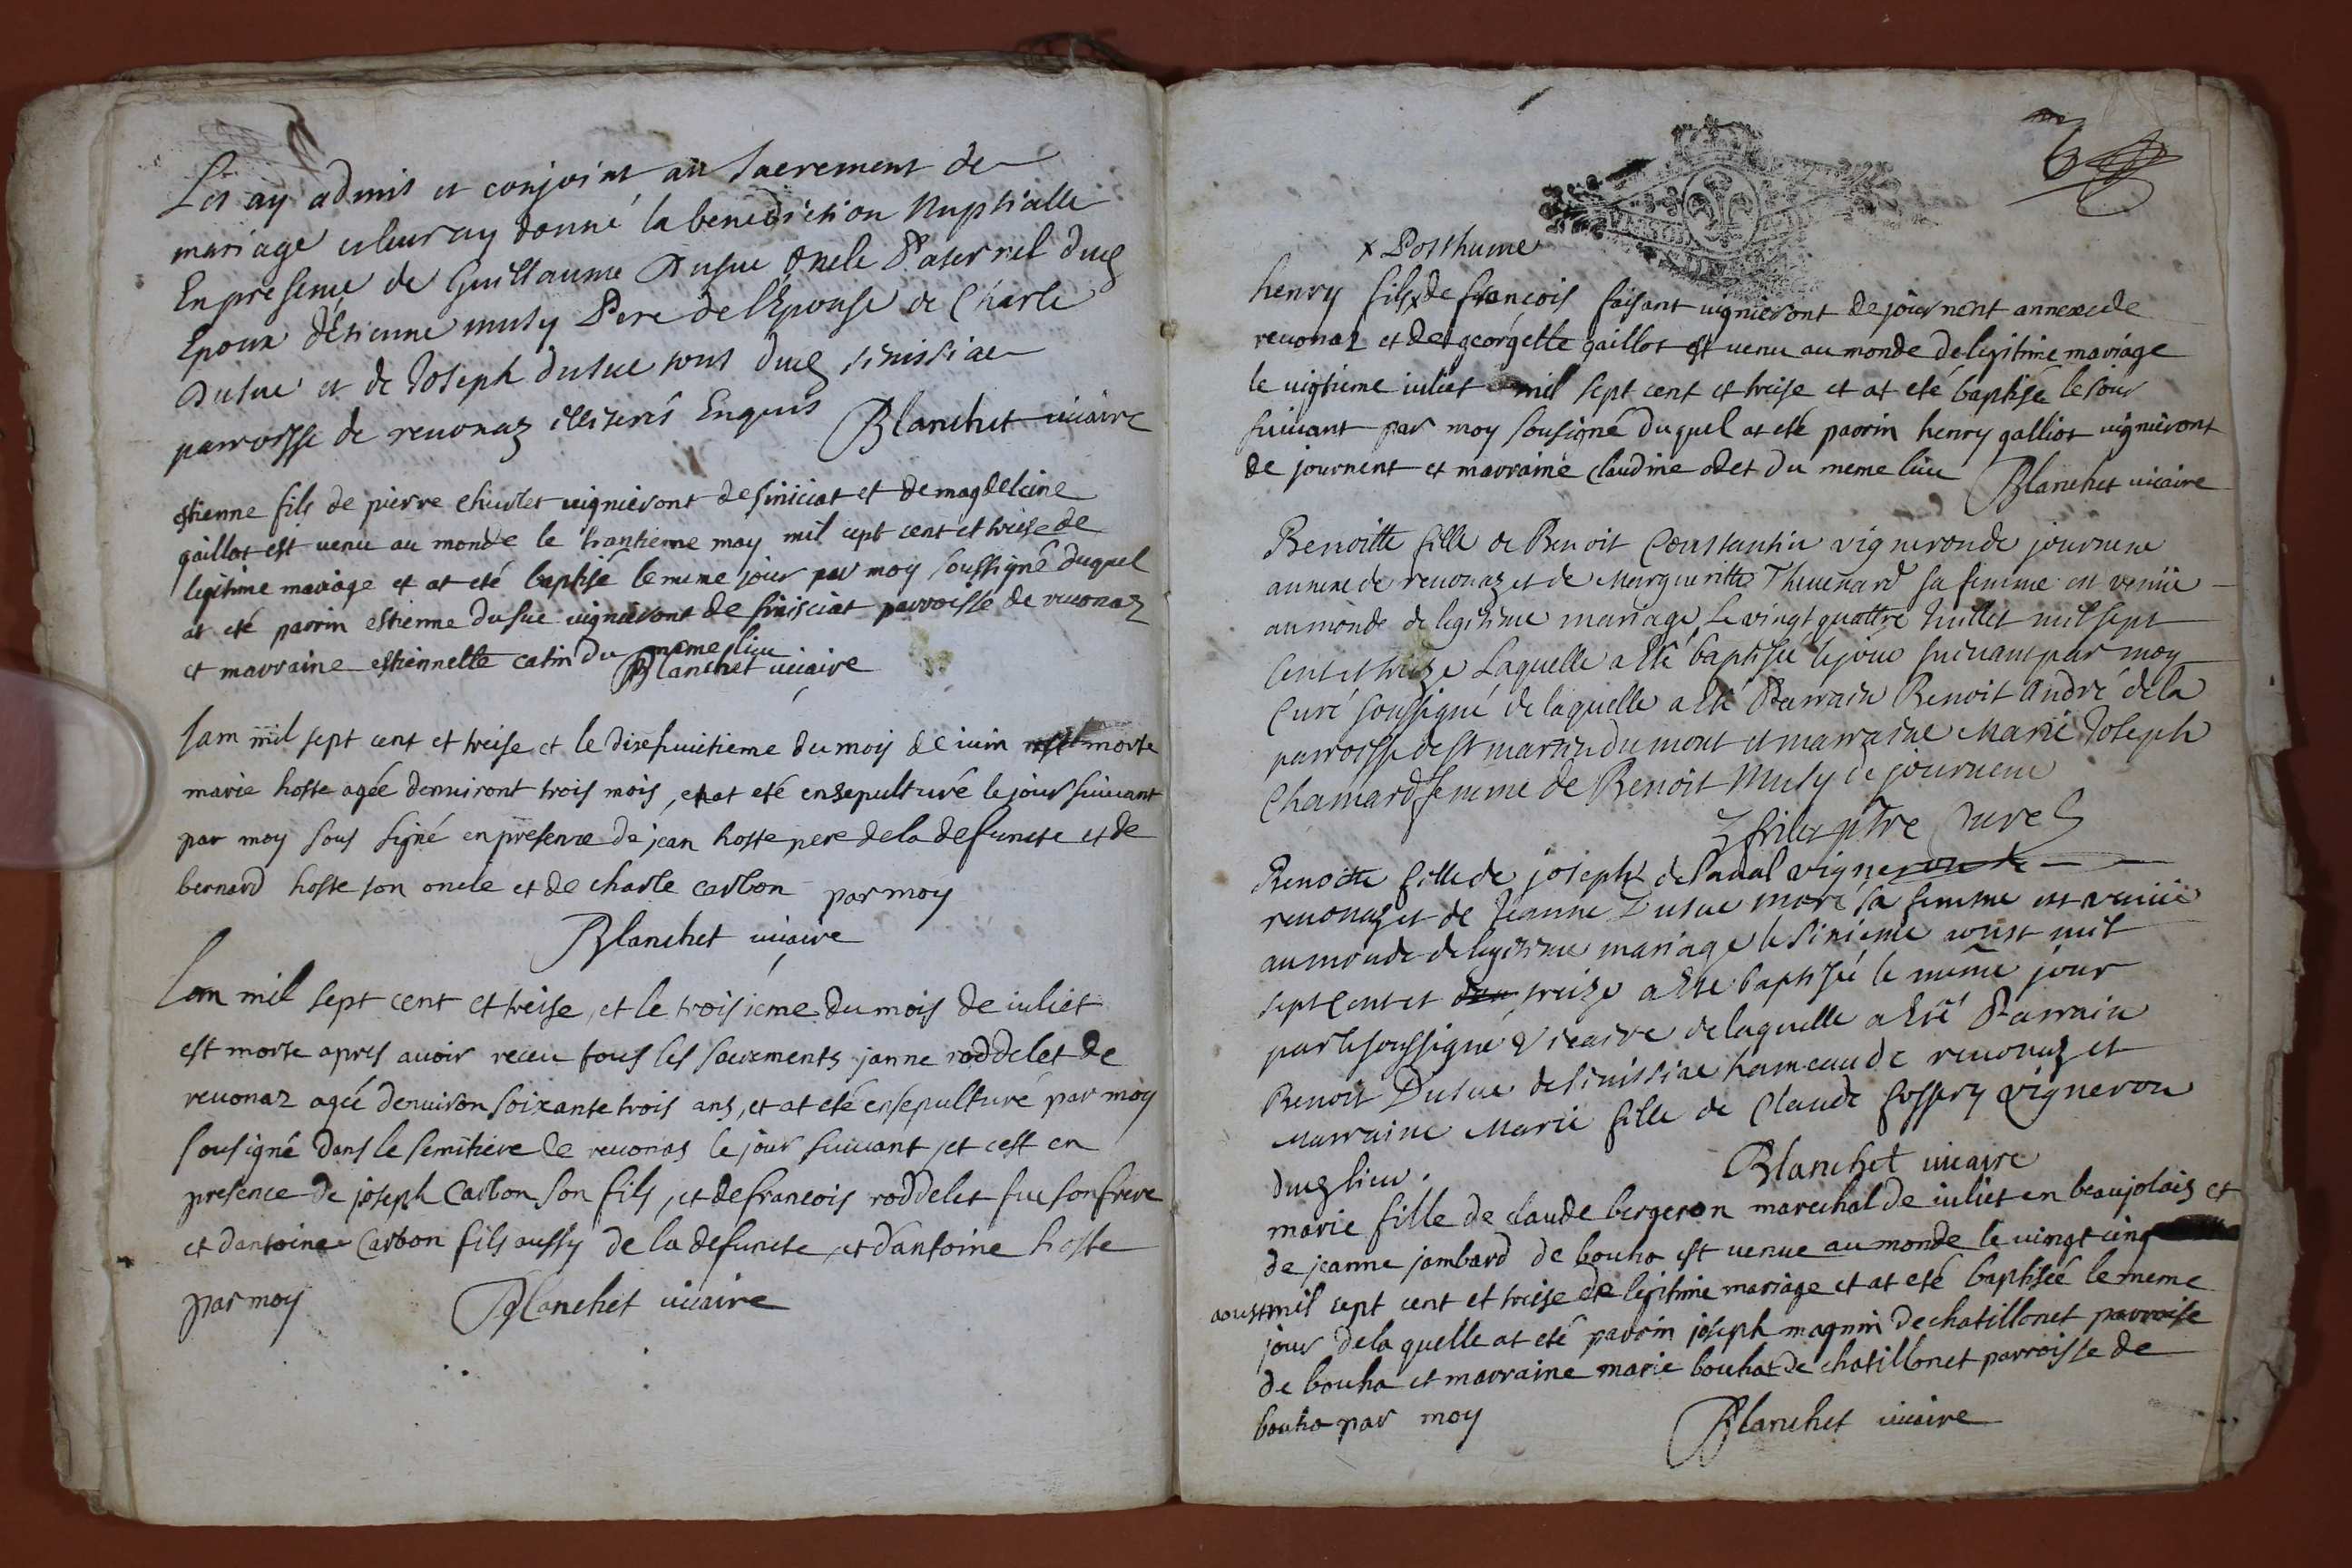 Les ay admis et conjoint au Sacrement de
mariage et leur ay donné la benediction Nuptialle
En presence de Guillaume Dusue Oncle Paternel dud
Epoux d'Etienne muty Pere de l'Epouse de Charle
Dusue et de Joseph dusue tous dud sinissiac
parroisse de reuonaz illiterés Enquis Blanchet uicaire
estienne fils de pierre Charlet uignieront de siniciat et de magdeleine
gaillot est uenu au monde le trantieme may mil sept cent et treise de
legitime mariage et at eté baptisé le meme jour par moy soussigné duquel
at eté parrin estienne dusue uignieront de sinisciat parroisse de reuonaz
et marraine estiennette catin du meme lieu
Blanchet uicaire
lam mil sept cent et treise et le dixhuitieme du mois de iuin est morte
marie hoste agée denuiront trois mois, et at eté ensepulturé le jour suiuant
par moy sous signé en presence de jean hoste pere de la defuncte et de
bernard hoste son oncle et de charle carbon par moy
Blanchet uicaire
lan mil sept cent et treise, et le troisieme du mois de iuliet
est morte apres auoir receu tous les sacrements janne roddelet de
reuonaz agée denuiron soixante trois ans, et at eté ensepulturé par moy
sousigné dans le semitiere de reuonas le jour suiuant, et cest en
presence de joseph Carbon son fils, et de francois roddelet sue son frere
et dantoine Carbon fils aussy de la defuncte, et d'antoine hoste
par moy Blanchet uicaire
6
x Posthume
henry fils x de francois faisant uignieront de journent annexe de
reuonaz et de georgette gaillot est uenu au monde de legitime mariage
le uigtieme iuliet mil sept cent et treise et at eté baptisé le jour
suiuant par moy sousigné duquel at eté parrin henry galliot uignieront
de journent et marraine claudine odet du meme lieu Blanchet uicaire
Benoitte fille de Benoit Constantin vigneron de journene
annexe de reuonaz et de Margueritte Theuenard sa femme est venüe
au monde de legitime mariage Le vingt quattre Juillet mil sept
Cent et treize Laquelle a Eté baptisée le jour suiuant par moy
Curé soussigné de laquelle a Eté Parrain Benoit André de la
parroisse de st martin du mont et marraine Marie Joseph
Chamard femme de Benoit Muty de journene
ptre Curé
Benoitte fille de joseph de Laual vigneron de
reuonaz et de Jeanne Dusue more sa femme est venüe
au monde de legitime mariage le sixieme aoust mil
sept Cent et treize a Eté baptisée le même jour
par le soussigné Vicaire de laquelle a Eté Parrain
Benoit Dusue de sinissiac hameau de reuonaz et
Marraine Marie fille de Claude fossery vigneron
dud lieu. Blanchet uicaire
marie fille de claude bergeron marechal de iuliet en beaujolais et
de jeanne jambard de bouha est uenue au monde le uingt cinq
aoust mil sept cent et treise de legitime mariage et at eté baptisée le meme
jour de la quelle at eté parrin joseph magnin de chatillonet parroisse
de bouha et marraine marie bouhat de chatillonet parroisse de
bouha par moy Blanchet uicaire